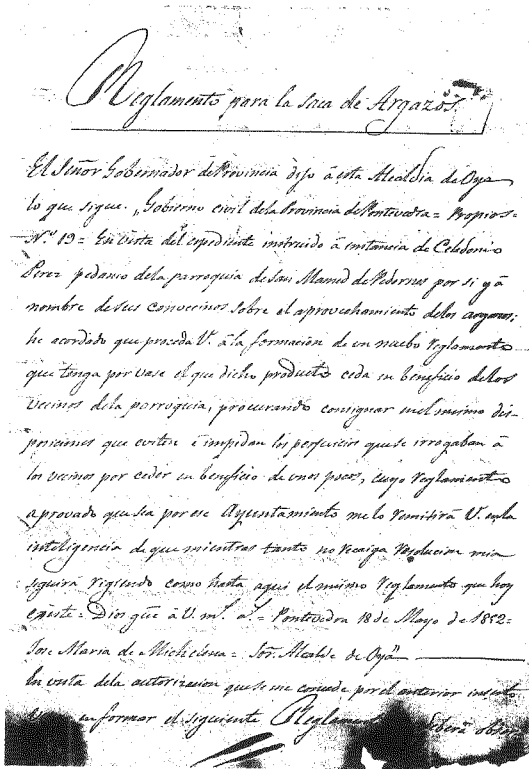 Reglamento para la saca de Argazos.
El Señor Gobernador de Provincia dijo á esta Alcaldia de Oya
lo que sigue. „Gobierno civil de la Provincia de Pontevedra = Propios=
N.º 19= En vista del espediente instruido á instancia de Celedonio
Perez pedanio de la parroquia de San Mamed de Pedornes por si y á
nombre de sus convecinos sobre el aprovechamiento de los argazos;
he acordado que proceda V. á la formacion de un nuebo reglamento
que tenga por vase el que dicho producto ceda en beneficio de los
vecinos de la parroquia, procurando consignar en el mismo dis-
posiciones que eviten é impidan los perjuicios que se irrogaban á
los vecinos por ceder en beneficio de unos pocos, cuyo reglamento
aprovado que sea por ese Ayuntamiento me lo remitirá V. en la
inteligencia de que mientras tanto no recaiga resolucion mia
seguirá rigiendo como hasta aqui el mismo reglamento que hoy
existe= Dios gūe á V. m.s a.s= Pontevedra 18 de Mayo de 1852=
Jose Maria de Michelena= Sor. Alcalde de Oya
En vista de la autorizacion que se me concede por el anterior inserto
en formar el siguiente Reglamento deberá obser